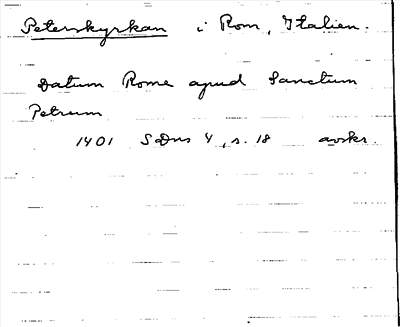 Peterskyrkan i Rom, Italien.
Datum Rome apud Sanctum
Petrum
1401 SDns 4, s. 18 avskr.